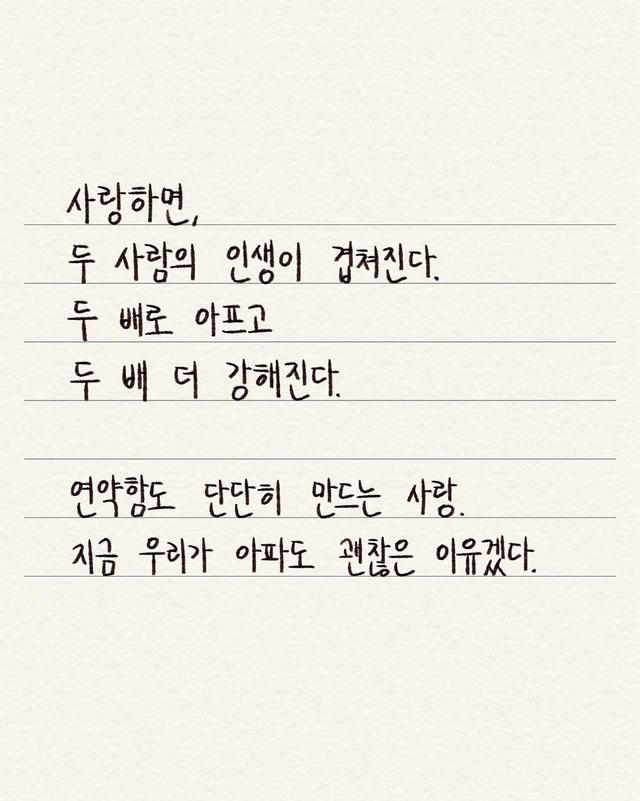 사랑하면,
두 사람의 인생이 겹쳐진다.
두 배로 아프고
두 배 더 강해진다.
연약함도 단단히 만드는 사랑.
지금 우리가 아파도 괜찮은 이유겠다.